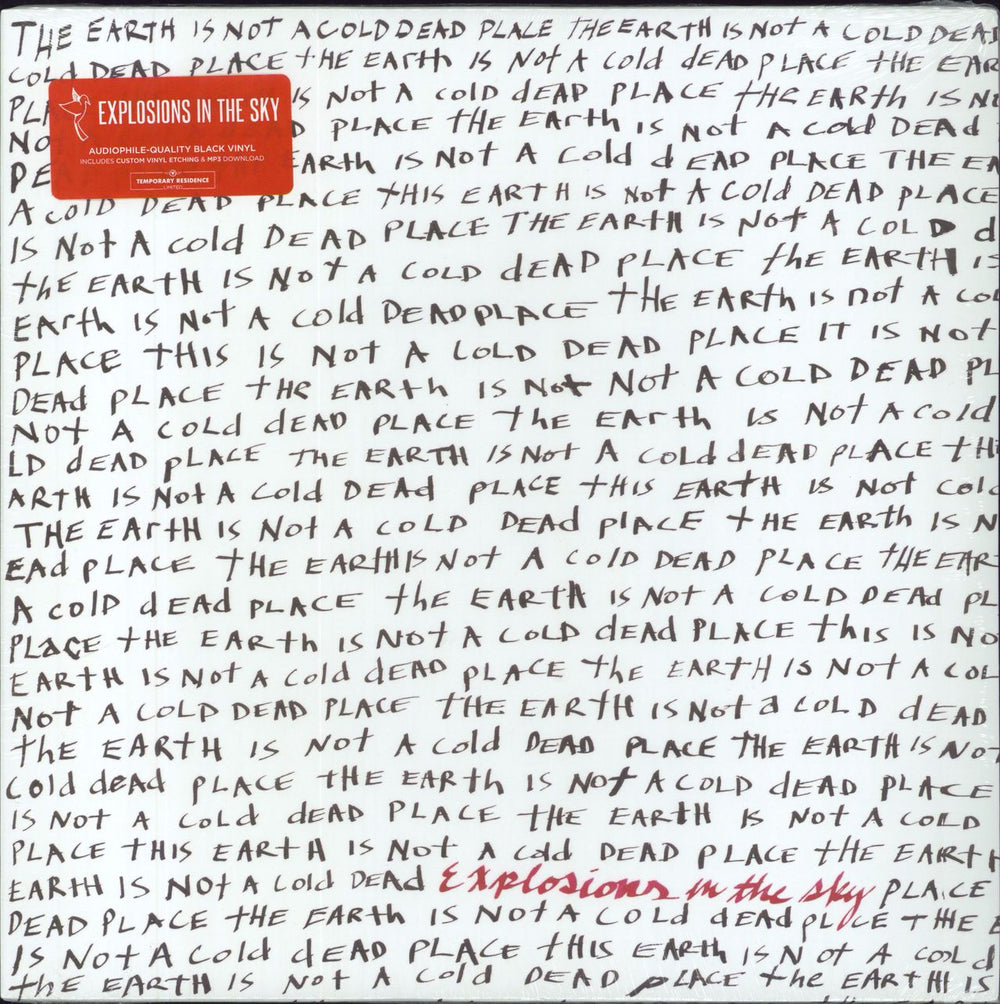 THE EARTH IS NOT A COLD DEAD PLACE THE EARTH IS NOT A COLD DEAD
COLd DEAD PLACE tHE EARth IS NOt A Cold dEAD PLACE tHE EAR
EXPLOSIONS IN THE SKY
AUDIOPHILE-QUALITY BLACK VINYL
INCLUDES CUSTOM VINYL ETCHING & MP3 DOWNLOAD
TEMPORARY RESIDENCE
LIMITED
PLA IS NOt A Cold dEAD PLACE tHE EARth IS NO
NO D PLACE tHE EARth IS NOt A Cold DEAd
DEA EARth IS NOt A Cold d EAD PLACE THE EA
A COlD DEAD PLACE tHIS EARtH IS NOt A COld DEAD PLACE
IS NOt A cold DEAD PLACE THE EARtH IS NOt A COLD d
tHE EARtH IS NOt A COLD dEAD PLACE tHE EARtH IS
EARth IS NOt A Cold DEAD PLACE tHE EARth IS not A Col
PLACE tHIS IS NOt A COLD DEAD PLACE IT IS NOt
DEAd PLACE tHE EARth IS NOt NOt A COLD DEAD PL
NOt A COLd dEAD PLACE tHE EARth IS NOt A Cold
LD dEAD pLACE THE EARTH IS NOt A COLd dEAD PLACE tH
ARtH IS NOt A Cold DEAd PLACE tHIS EARtH IS NOt Cold
THE EARtH IS NOt A COLD DEAd PlACE tHE EARth IS N
EAd PLACE tHE EARtH IS NOt A COLD DEAD PLACE tHE EAR
A COlD dEAd PLACE thE EARtH IS NOt A COLD DEAd PL
PLaCE tHE EARth IS NOt A COLD dEAd PLACE this IS NO
EARtH IS NOt A Cold dEAD PLACE thE EARtH IS NOt A COL
NOt A COLD DEAD PLACE tHE EARtH IS NOt a COLD dEAD
thE EARtH IS NOt A Cold DEAD PLACE THE EARtH IS NOt
COld dEAd PLACE tHE EARth IS NOt A COLD dEAD PLACE
IS NOt A COLd dEAD PLACE tHE EARtH IS NOt A COLD
PLACE tHIS EARtH IS NOt A Cold DEAD PLACE tHE EARt
EARtH IS NOt A COld DEAD Explosions in the sky PLACE
DEAD PLACE tHE EARth IS NOt A COLd dEAd PLACE tHE E
IS NOt A COld dEAD PLACE tHIS EARtH IS NOt A COOL d
thE EARtH IS NOt A Cold DEAD pLACE the EARtH IS